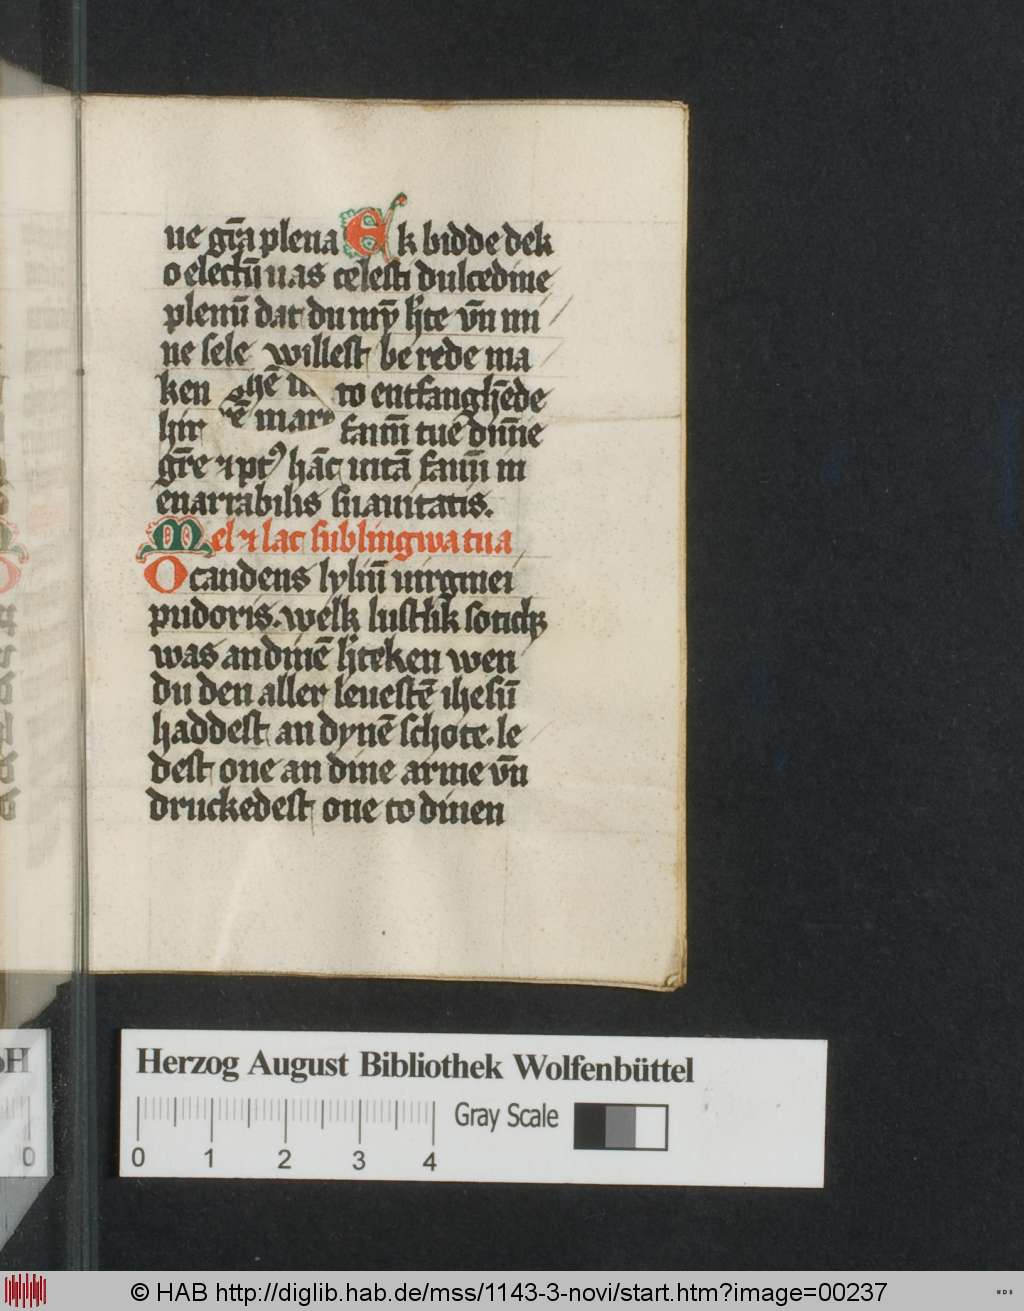 ue gr̄a plena Ek bidde dek
o electū uas celesti dulcedine
plenū dat du my̅ h̄te vn̄ mi
ne sele willest be rede ma
ken to entfangh̄ede
hir fauū tue diuīe
gr̄e ⁊ ptꝰ hāc uitā fauū in
enarrabilis suauitatis.
Mel ⁊ lac sub lingwa tua
O candens lyliū uirginei
pudoris. welk lustlik
was an dinē h̄teken wen
du den aller leuestē ihesū
haddest an dynē schote. le
dest one an dine arme vn̄
druckedest one to dinen
Herzog August Bibliothek Wolfenbüttel
Gray Scale
0 1 2 3 4
0
© HAB http://diglib.hab.de/mss/1143-3-novi/start.htm?image=00237